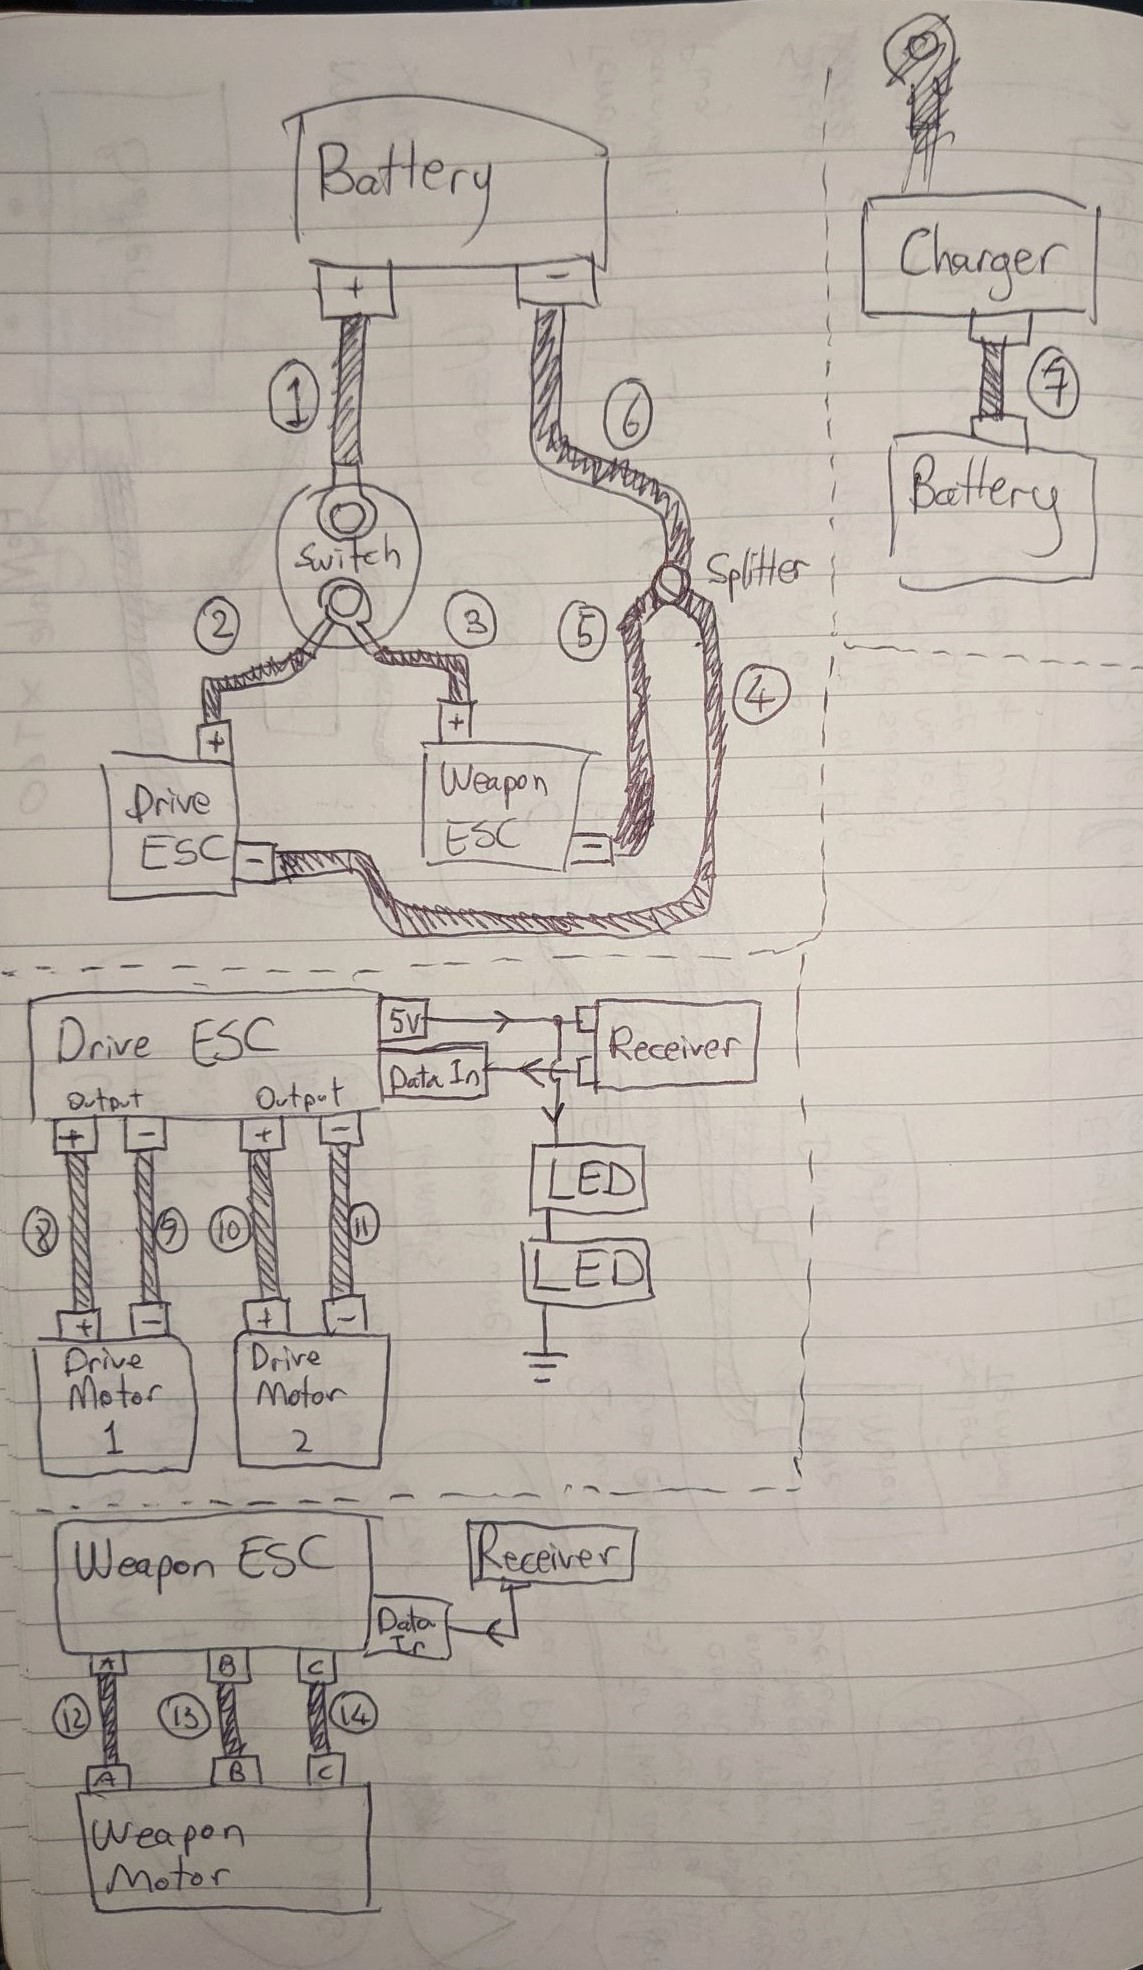 Battery
+
-
1
6
Switch
Splitter
2
3
5
4
+
+
Drive
ESC
-
Weapon
ESC
-
Charger
7
Battery
Drive ESC
5v
Data In
Receiver
Output
Output
+
-
+
-
8
9
10
11
LED
LED
+
-
+
-
Drive
Motor
1
Drive
Motor
2
Weapon ESC
Receiver
Data
In
A
B
C
12
13
14
A
B
C
Weapon
Motor